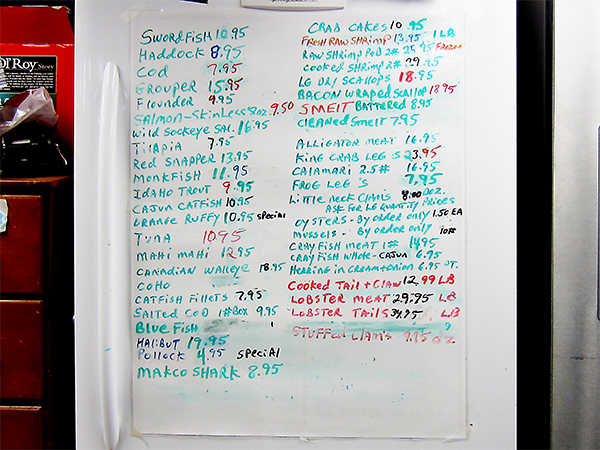 Ol'Roy
SWORDFISH 10.95
HADDOCK 8.95
COD 7.95
GROUPER 15.95
Flounder 9.95
SALMON-SKINLESS 8oz. 9.50
Wild Sockeye SAL. 16.95
TILAPIA 7.95
Red SNAPPER 13.95
MONKFISH 11.95
IDAHO TROUT 9.95
CAJUN CATFISH 10.95
ORANGE RUFFY 10.95 SPECIAL
TUNA 10.95
MAHI MAHI 12.95
CANADIAN WALLEYE 18.95
COHO
CATFISH FILLETS 7.95
SALTED COD 1#BOX 9.95
BLUE FISH
HALIBUT 19.95
POLLOCK 4.95 SPECIAL
MAKCO SHARK 8.95
CRAB CAKES 10.95
FRESH RAW SHRIMP 13.95 1LB
RAW SHRIMP P+D 2# 25.95 FROZEN
COOKED SHRIMP 2# 29.95
LG DRY SCALLOPS 18.95
BACON WRAPED SCALLOP 18.95
SMELT BATTERED 8.95
CLEANED SMELT 7.95
ALLIGATOR MEAT 16.95
KING CRAB LEG'S 23.95
CALAMARI 2.5# 16.95
FROG LEG'S 7.95
LITTLE NECK CLAMS 8.00 DOZ.
ASK FOR LG QUANTITY PRICES
OYSTERS - BY ORDER ONLY 1.50 EA
MUSSELS - BY ORDER ONLY 10#
CRAYFISH MEAT 1# 14.95
CRAYFISH WHOLE - CAJUN 6.95
HERRING IN CREAM+ONION 6.95 PT.
COOKED TAIL + CLAW 12.99 LB
LOBSTER MEAT 29.95 LB
LOBSTER TAILS 34.95 LB
STUFFED CLAMS 9.95 DZ